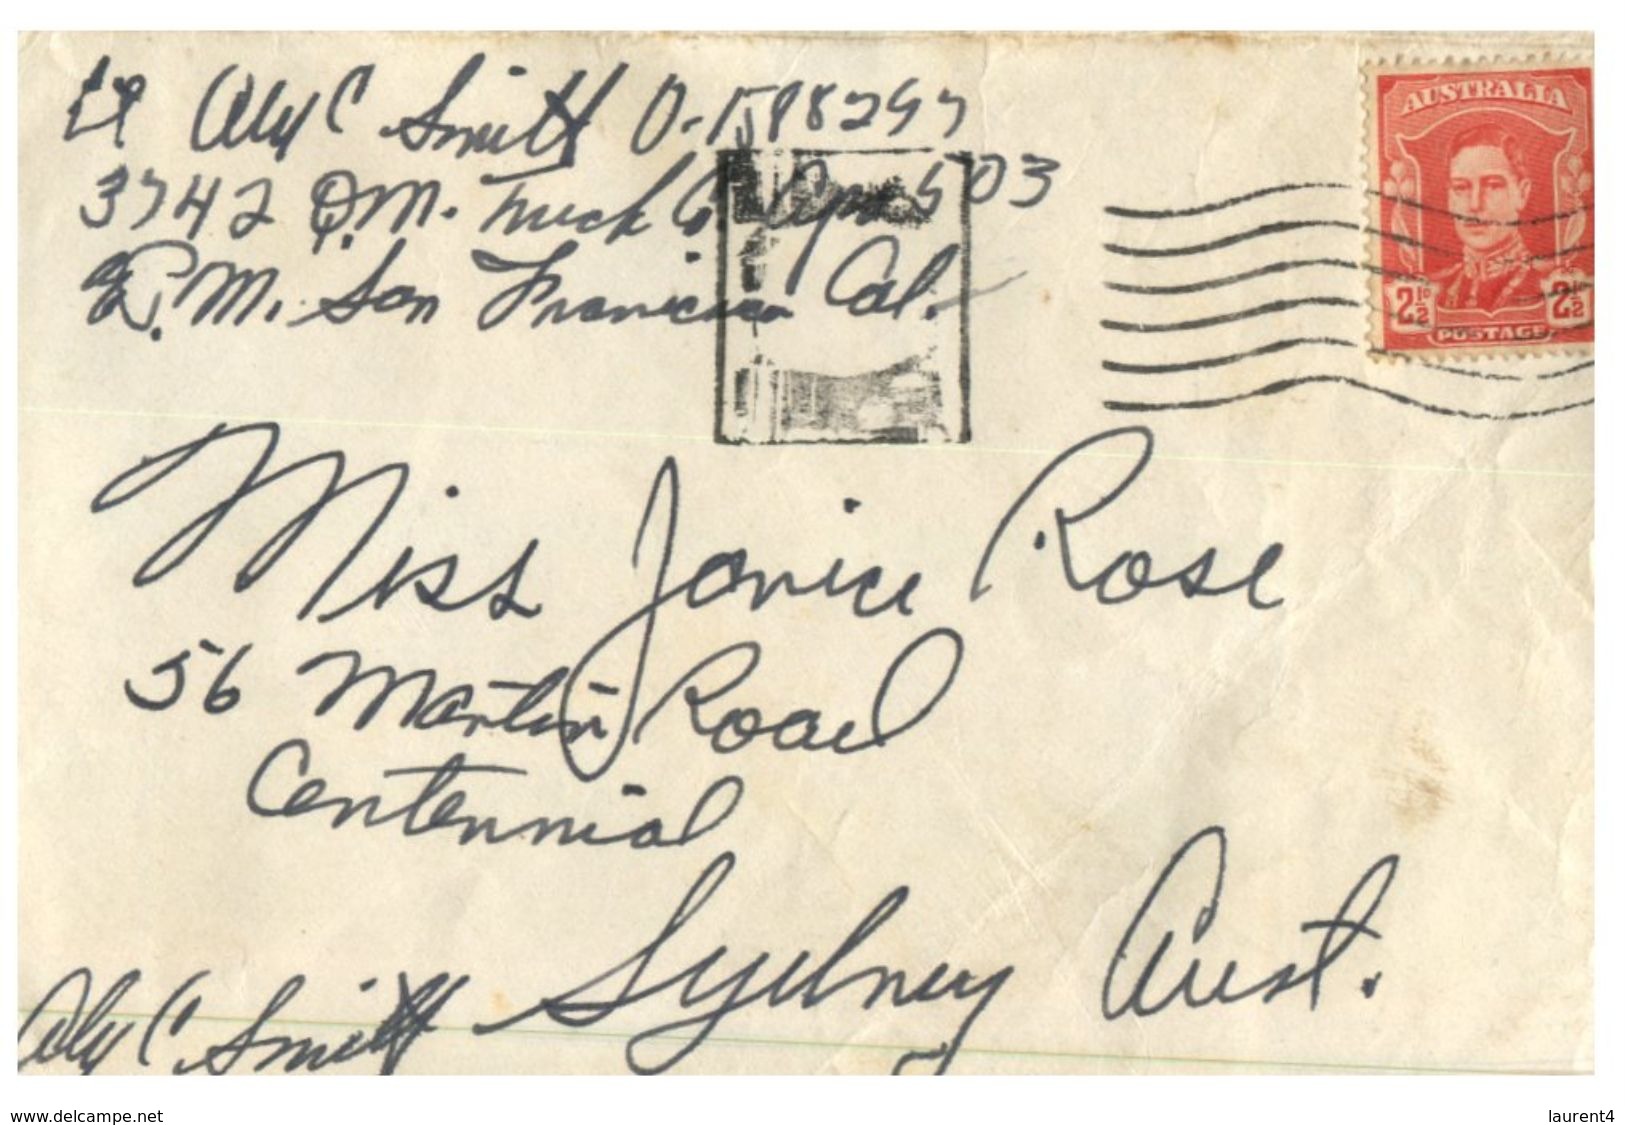 Lt Aly C Smith O-1588297
3742 Q.M. Truck Co Apo 503
P.M. San Francisco Cal.
AUSTRALIA
2½D 2½D
POSTAGE
Miss Janice Rose
56 Martin Road
Centennial
Sydney Aust.
Aly C Smith
www.delcampe.net
laurent4